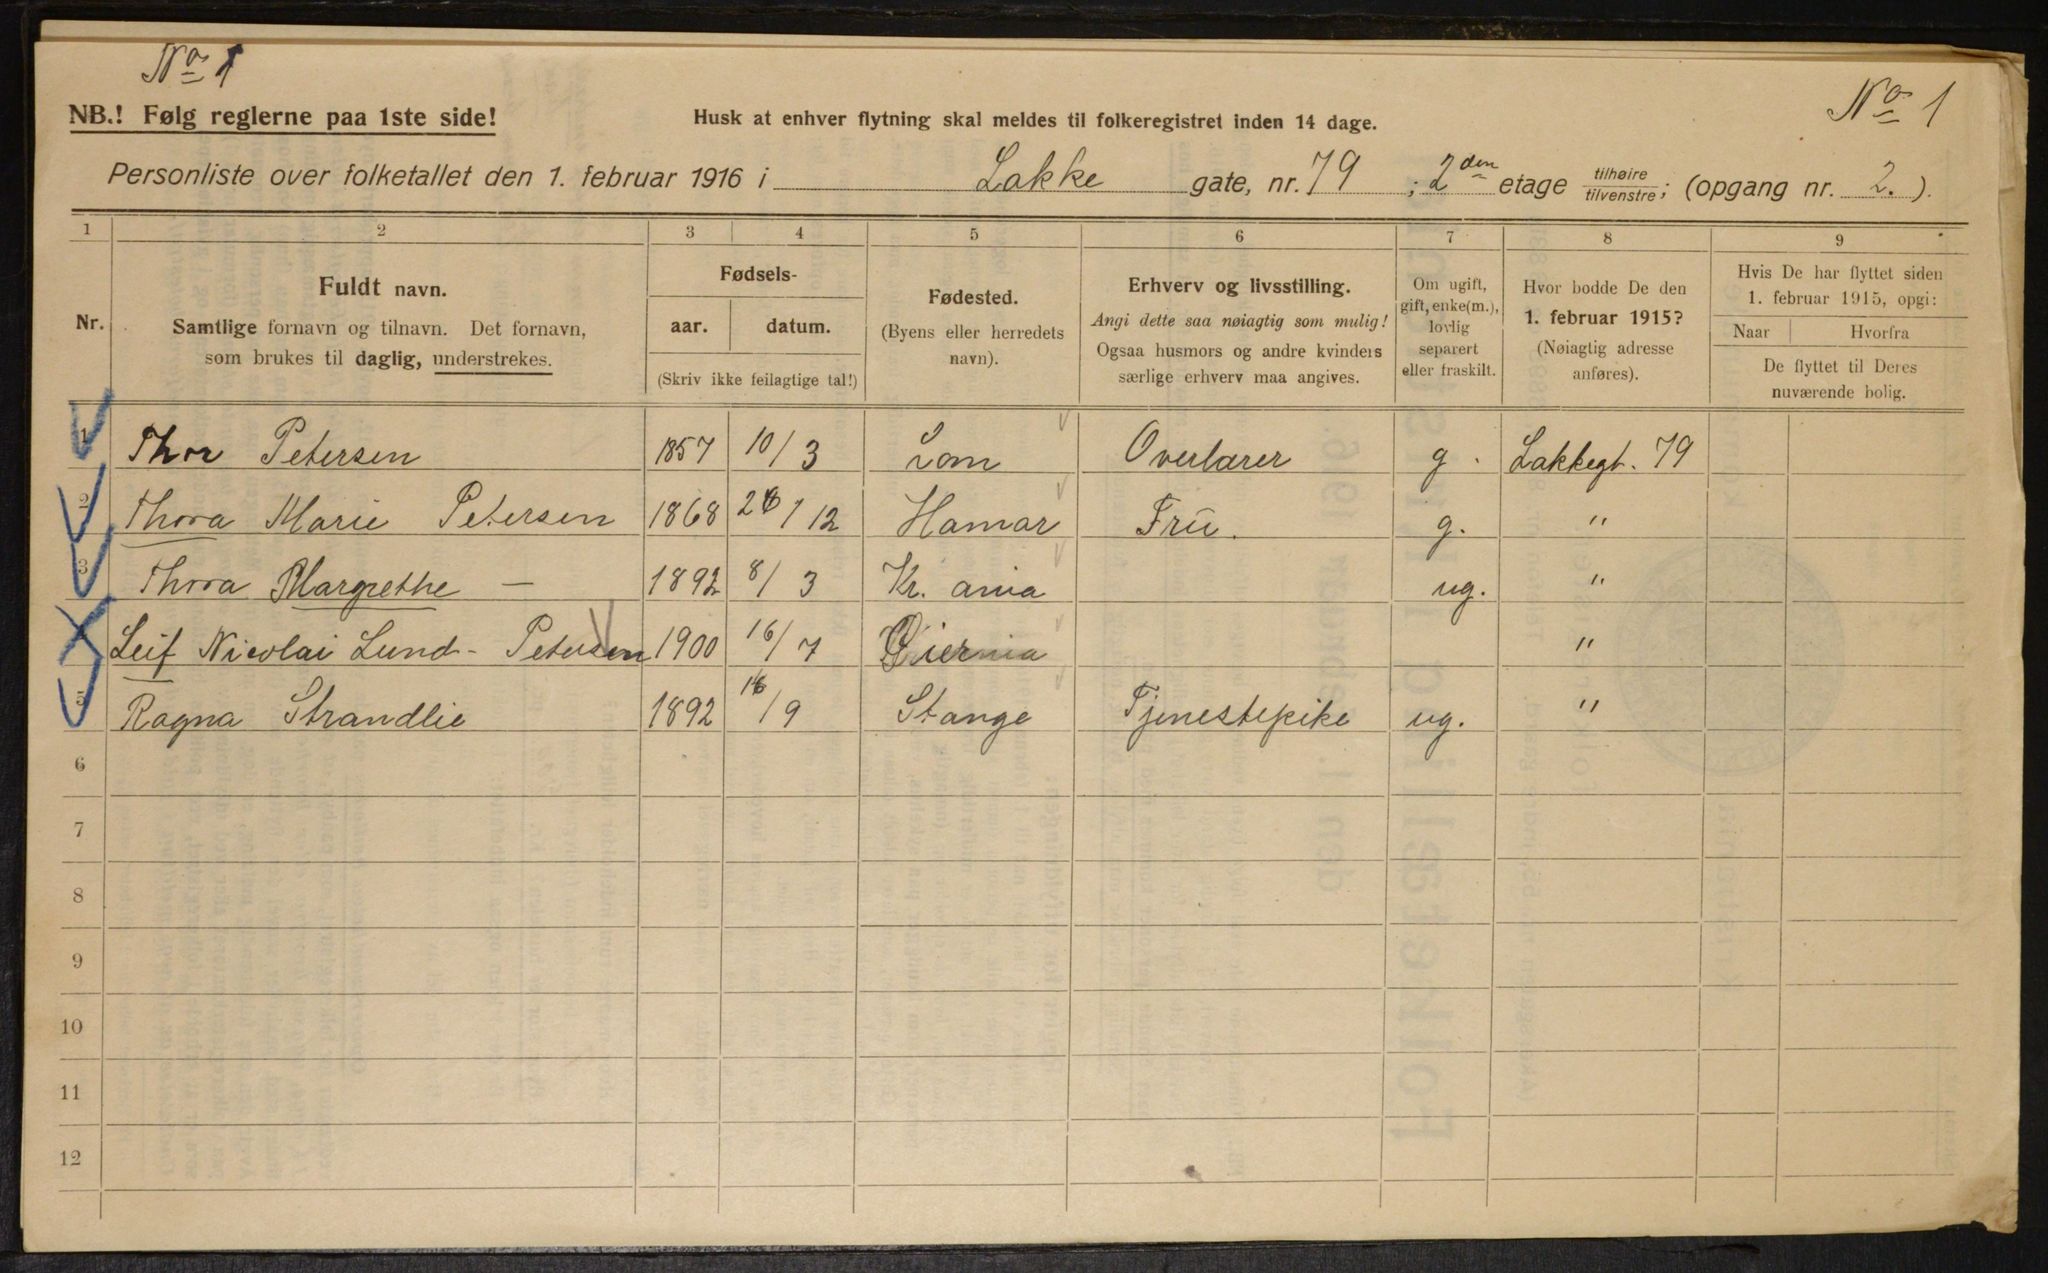 No 1
No 1
NB.! Følg reglerne paa 1ste side!
Husk at enhver flytning skal meldes til folkeregistret inden 14 dage.
Personliste over folketallet den 1. februar 1916 i Lakke gate, nr. 79 ; 2den etage tilhøire tilvenstre; (opgang nr. 2. ).
1 2 3 4 5 6 7 8 9
Nr.
Fuldt navn.
Samtlige fornavn og tilnavn. Det fornavn,
som brukes til daglig, understrekes.
Fødsels-
aar. datum.
(Skriv ikke feilagtige tal!)
Fødested.
(Byens eller herredets
navn).
Erhverv og livsstilling.
Angi dette saa nøiagtig som mulig!
Ogsaa husmors og andre kvinders
særlige erhverv maa angives.
Om ugift,
gift, enke(m.),
lovlig
separert
eller fraskilt.
Hvor bodde De den
1. februar 1915?
(Nøiagtig adresse
anføres).
Hvis De har flyttet siden
1. februar 1915, opgi:
Naar Hvorfra
De flyttet til Deres
nuværende bolig.
1 Thor Petersen 1857 10/3 Lom Overlærer g. Lakkegt. 79
2 Thora Marie Petersen 1868 /12 Hamar Fru. g. "
3 Thora Margrethe — 1892 8/3 Kr. ania ug. "
Leif Nicolai Lund - Petersen 1900 16/7 "
5 Ragna Strandlie 1892 /9 Stange Tjenestepike ug. "
6
7
8
9
10
11
12